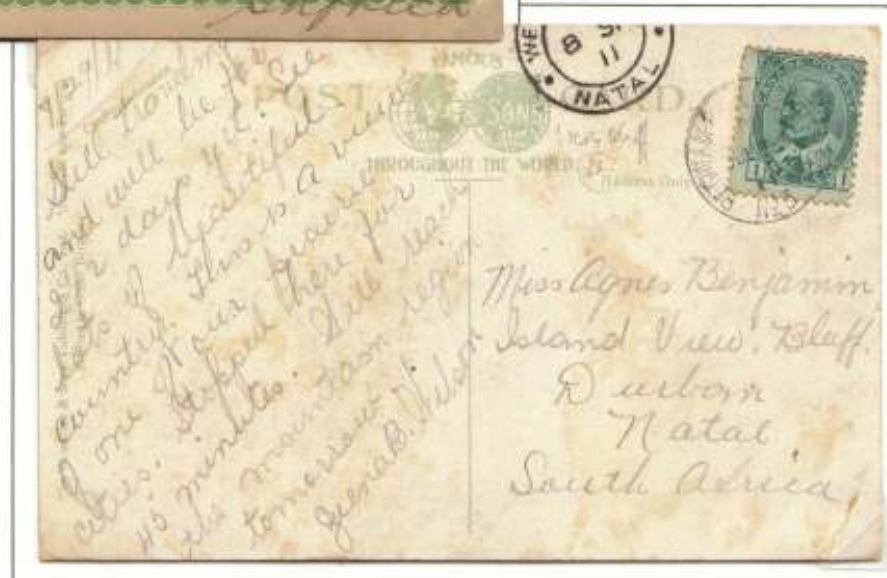 Africa
FAMOUS
POST CARD
& SONS
THROUGHOUT THE WORLD
Address Only
WE
8
11
NATAL
9/29/11
Still traveling
and will be for
2 days yet. See
lots of beautiful
country. This is a view
of one of our prairie
cities. Stopped there for
45 minutes. Will reach
the mountain region
tomorrow.
B. Wilson
Miss Agnes Benjamin
Island View. Bluff.
Durban
Natal
South Africa